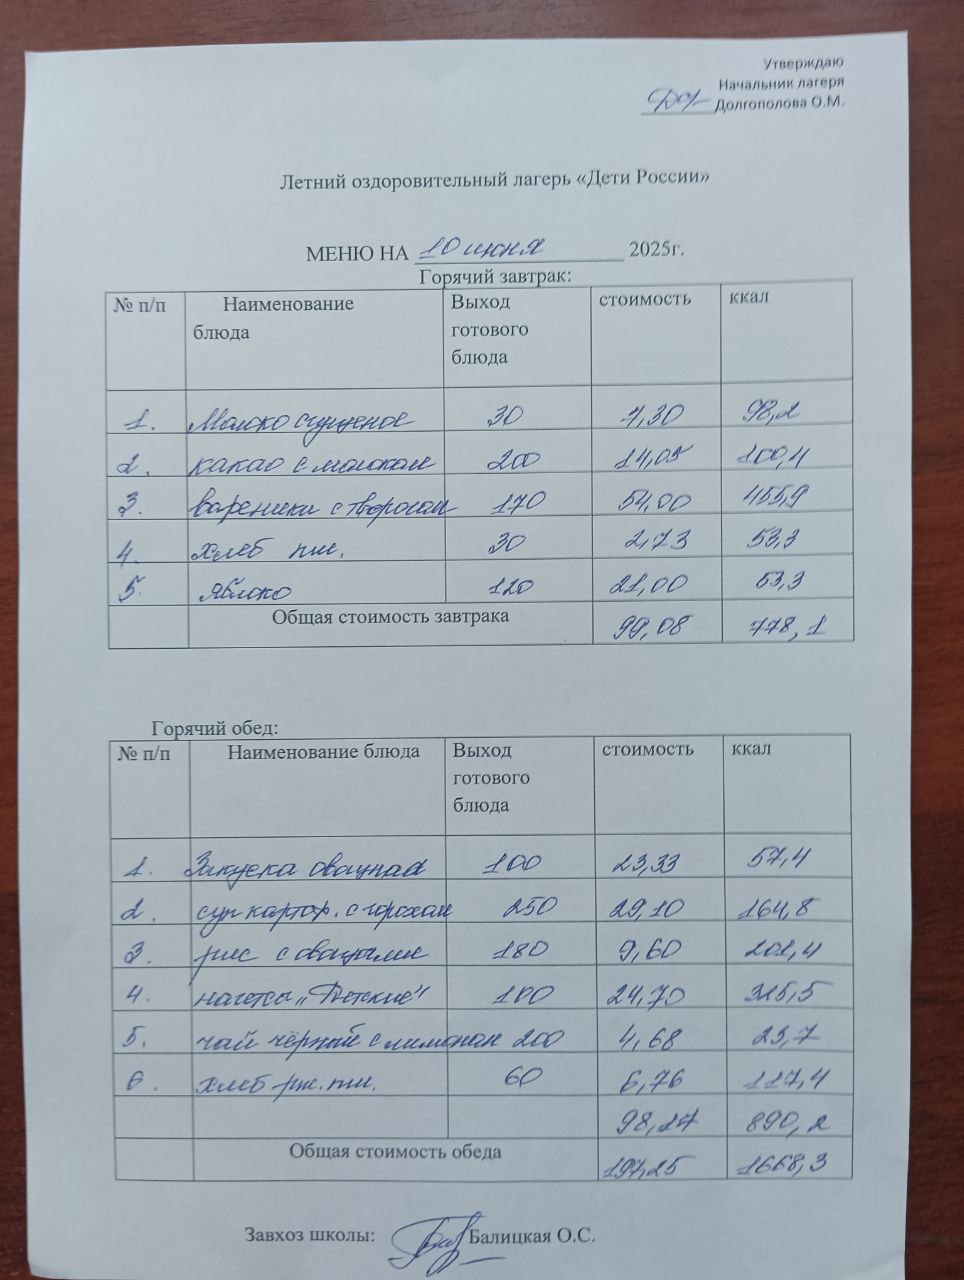 Утверждаю
Начальник лагеря
Долгополова О.М.
Летний оздоровительный лагерь «Дети России»
МЕНЮ НА 10 июня 2025г.
Горячий завтрак:
№ п/п Наименование блюда Выход готового блюда стоимость ккал
1. Молоко сгущеное 30 7,30 98,2
2. какао с молоком 200 14,05 100,4
3. вареники с творогом 170 54,00 455,9
4. хлеб пш. 30 2,73 53,3
5. яблоко 120 21,00 53,3
Общая стоимость завтрака 99,08 778,1
Горячий обед:
№ п/п Наименование блюда Выход готового блюда стоимость ккал
1. Закуска овощная 100 23,33 57,4
2. суп картоф. с горохом 250 29,10 164,8
3. рис с овощами 180 9,60 201,4
4. нагетсы „Детские" 100 24,70 325,5
5. чай чёрный с лимоном 200 4,68 23,7
6. хлеб рж.пш. 60 6,76 117,4
98,17 890,2
Общая стоимость обеда 197,25 1668,3
Завхоз школы: Балицкая О.С.